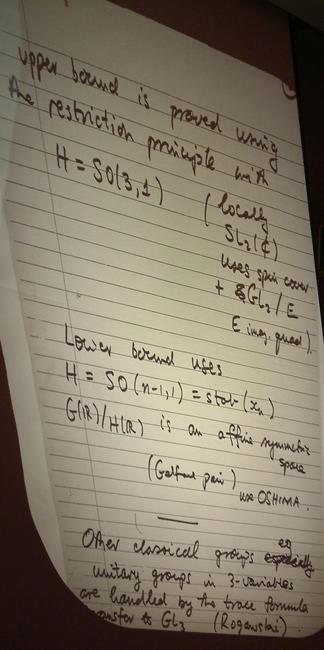 upper bound is proved using
the restriction principle with
H = SO(3,1) (locally
SL₂(ℂ)
uses spin cover
+ GL₂/E
E imag. quad)
Lower bound uses
H = SO(n-1,1) = stab(xₙ)
G(ℝ)/H(ℝ) is an affine symmetric
space
(Gelfand pair) use OSHIMA.
Other classical groups eg especially
unitary groups in 3-variables
are handled by the trace formula
transfer to GL₃ (Rogawski)